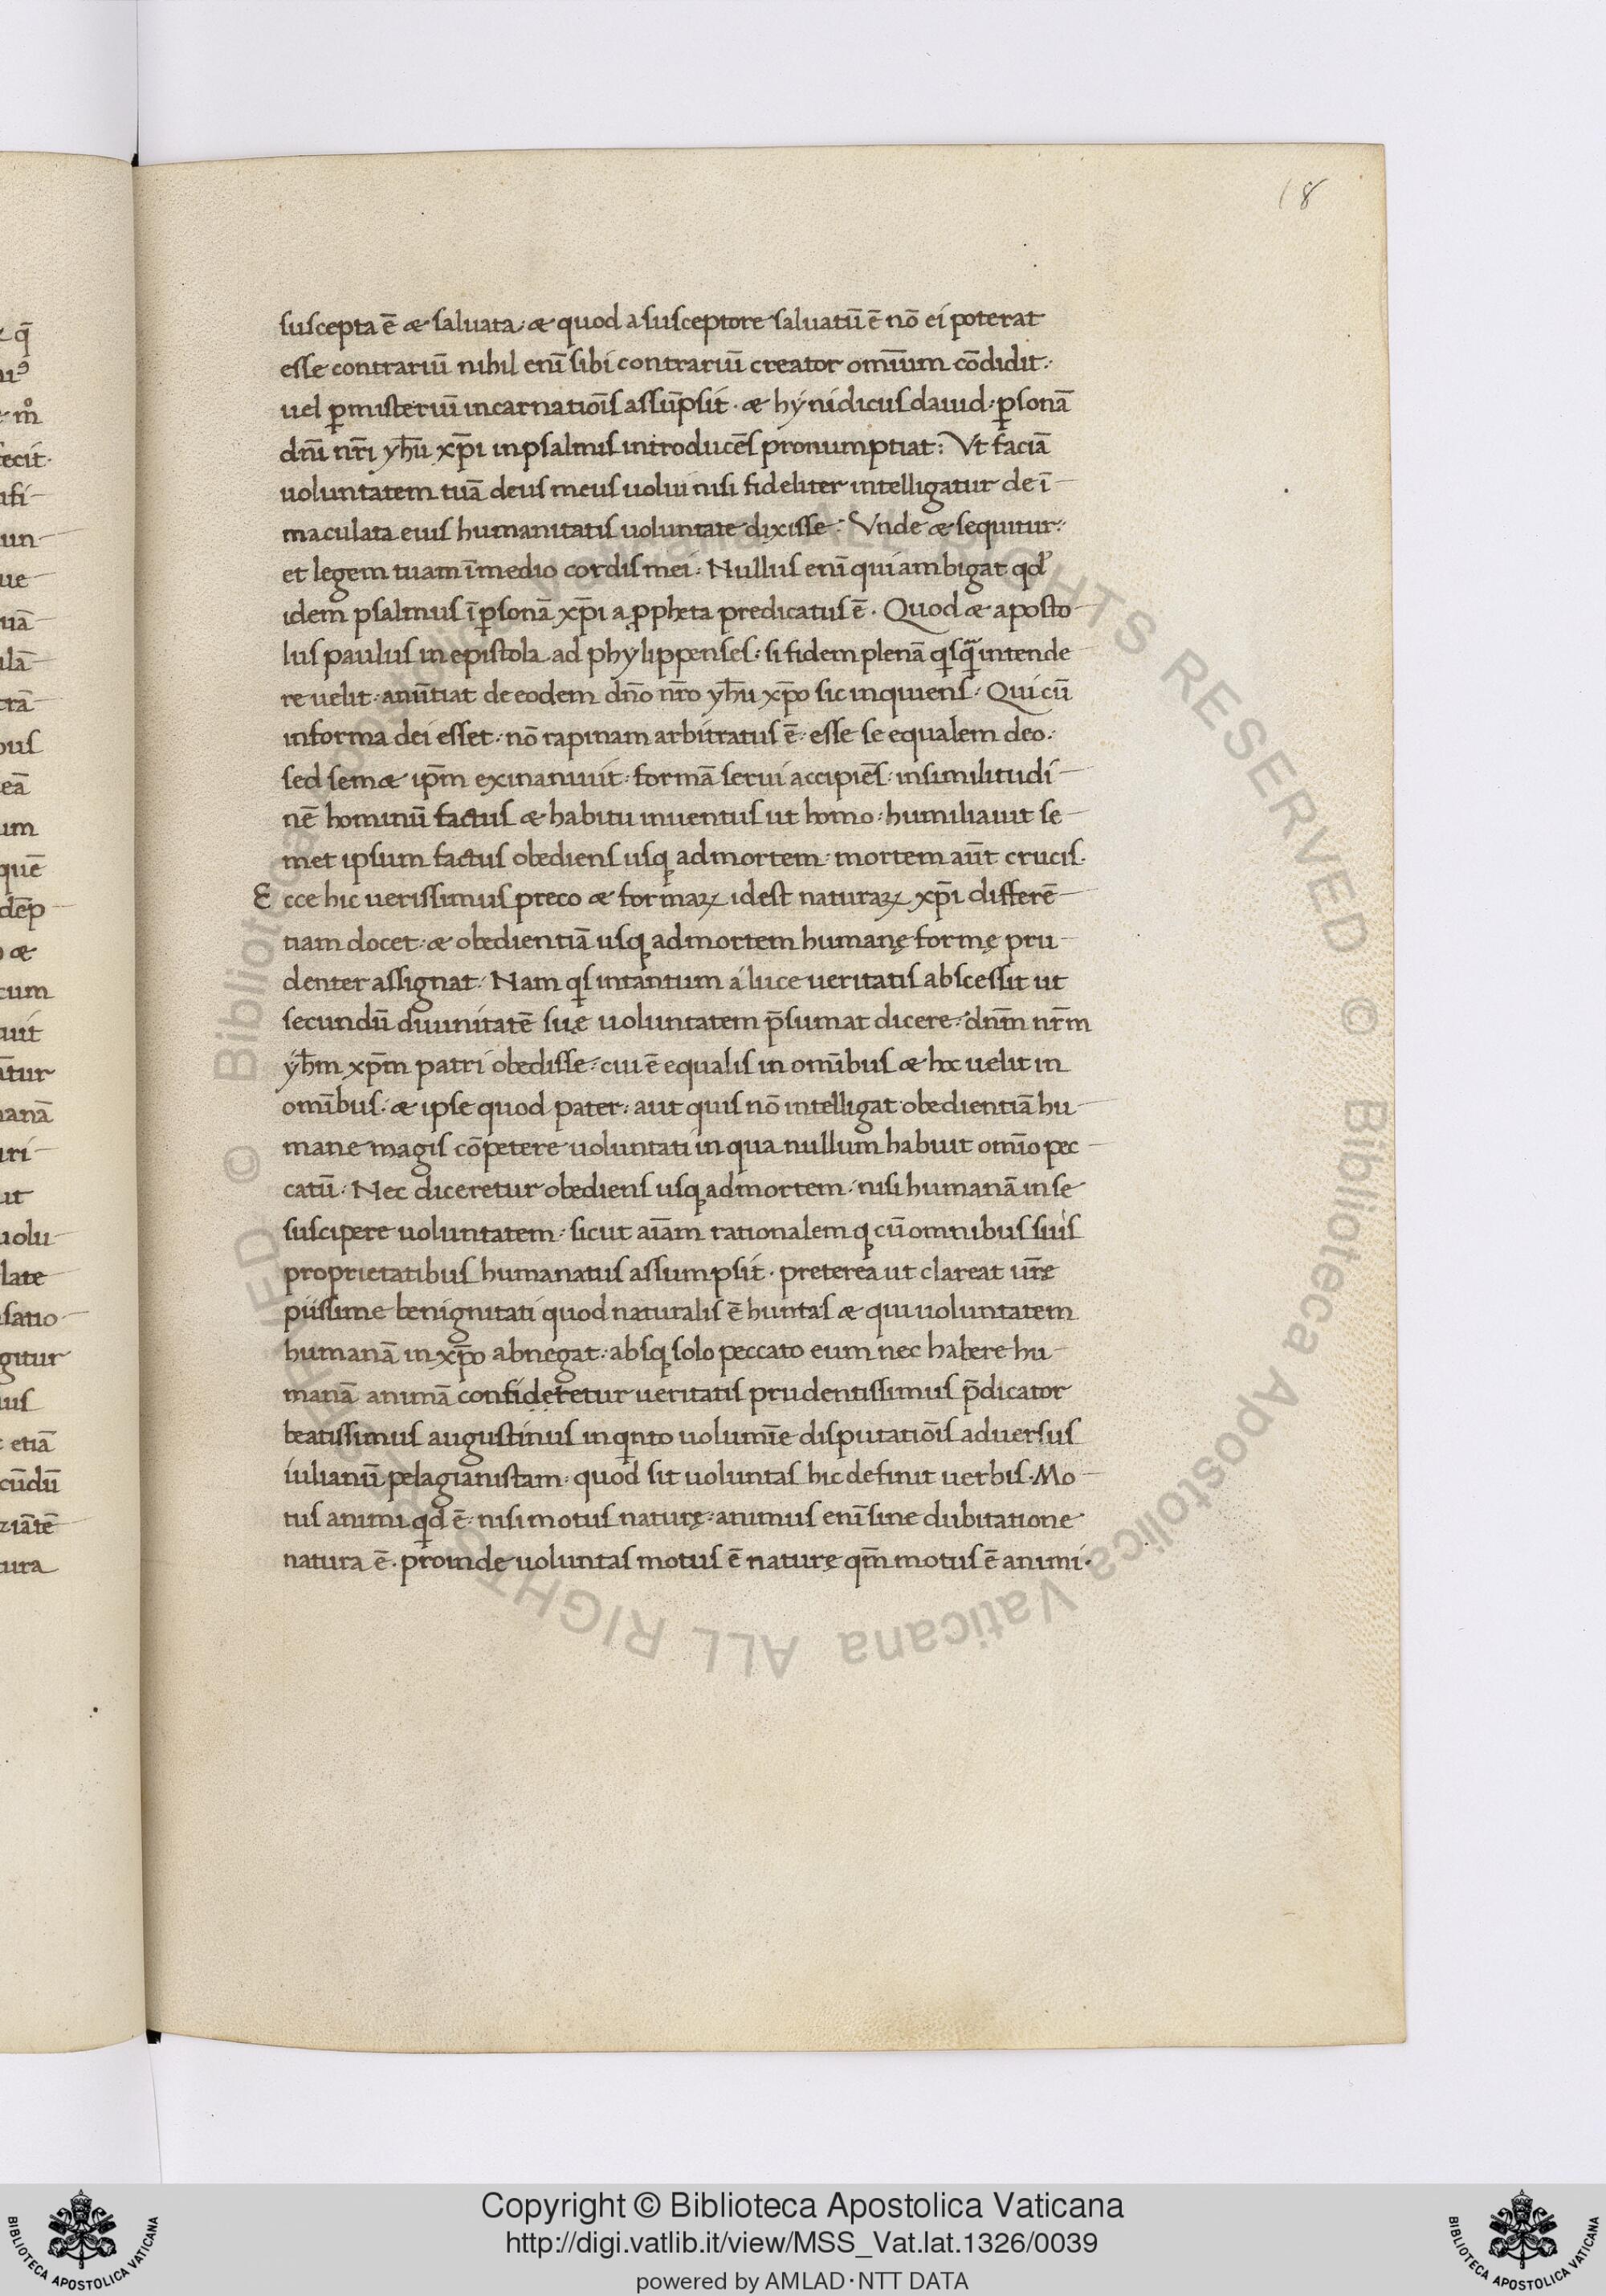 18
suscepta ē & saluata· & quod a susceptore saluatū ē nō ei poterat
esse contrariū nihil enī sibi contrariū creator omīum cōdidit·
uel ꝑ misteriū incarnatiōis assūpsit· & hynidicus dauid· ꝑsonā
dn̄i nr̄i yħu xp̄i in psalmis introducēs pronumptiat: Vt faciā
uoluntatem tuā deus meus uolui nisi fideliter intelligatur de ī
maculata eius humanitatis uoluntate dixisse· Vnde & sequitur:
et legem tuam ī medio cordis mei· Nullus enī qui ambigat qđ
idem psalmus ī ꝑsonā xp̄i a ꝓpheta predicatus ē· Quod & aposto
lus paulus in epistola ad phylippenses· si fidem plenā qisqā intende
re uelit· anūtiat de eodem dn̄o nr̄o yħu xp̄o sic inquiens· Qui cū
in forma dei esset· nō rapinam arbitratus ē· esse se equalem deo·
sed sem& ip̄m exinaniuit· formā serui accipiēs· in similitudi
nē hominū factus & habitu inuentus ut homo· humiliauit se
met ipsum factus obediens usq; ad mortem· mortem aūt crucis·
Ecce hic uerissimus preco & formaꝝ idest naturaꝝ xp̄i differē
tiam docet· & obedientiā usq; ad mortem humanę formę pru
denter assignat· Nam qis in tantum a luce ueritatis abscessit ut
secundū diuinitatē suę uoluntatem p̄sumat dicere· dn̄m nr̄m
yħm xp̄m patri obedisse· cui ē equalis in omībus & hoc uelit in
omībus· & ipse quod pater· aut quis nō intelligat obedientiā hu
mane magis cōpetere uoluntati in qua nullum habuit omīo pec
catū· Nec diceretur obediens usq; ad mortem· nisi humanā in se
suscipere uoluntatem· sicut aīam rationalem q; cū omnibus suis
proprietatibus humanatus assumpsit· preterea ut clareat ur̄ę
piissime benignitati quod naturalis ē huntas & qui uoluntatem
humanā in xp̄o abnegat· absq; solo peccato eum nec habere hu
manā animā confideretur ueritatis prudentissimus p̄dicator
beatissimus augustinus in qinto uolumīe disputatiōis aduersus
iulianū pelagianistam· quod sit uoluntas hic definit uerbis· Mo
tus animi qid ē· nisi motus naturę· animus enī sine dubitatione
natura ē· proinde uoluntas motus ē naturę qm̄ motus ē animi·
© Biblioteca Apostolica Vaticana ALL RIGHTS RESERVED © Biblioteca Apostolica Vaticana ALL RIGHTS RESERVED
Copyright © Biblioteca Apostolica Vaticana
http://digi.vatlib.it/view/MSS_Vat.lat.1326/0039
powered by AMLAD·NTT DATA
BIBLIOTECA APOSTOLICA VATICANA
BIBLIOTECA APOSTOLICA VATICANA